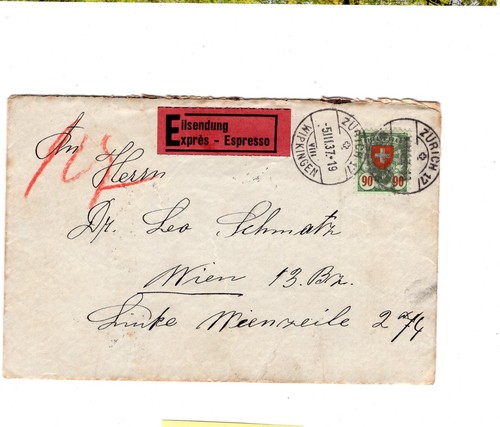 Eilsendung
Exprès - Espresso
ZÜRICH 17
WIPKINGEN
-5.III.37-19
VIII
ZÜRICH 17
90 90
An
Herrn
Dr. Leo Schmatz
Wien 13. Bz.
Linke Wienzeile 2